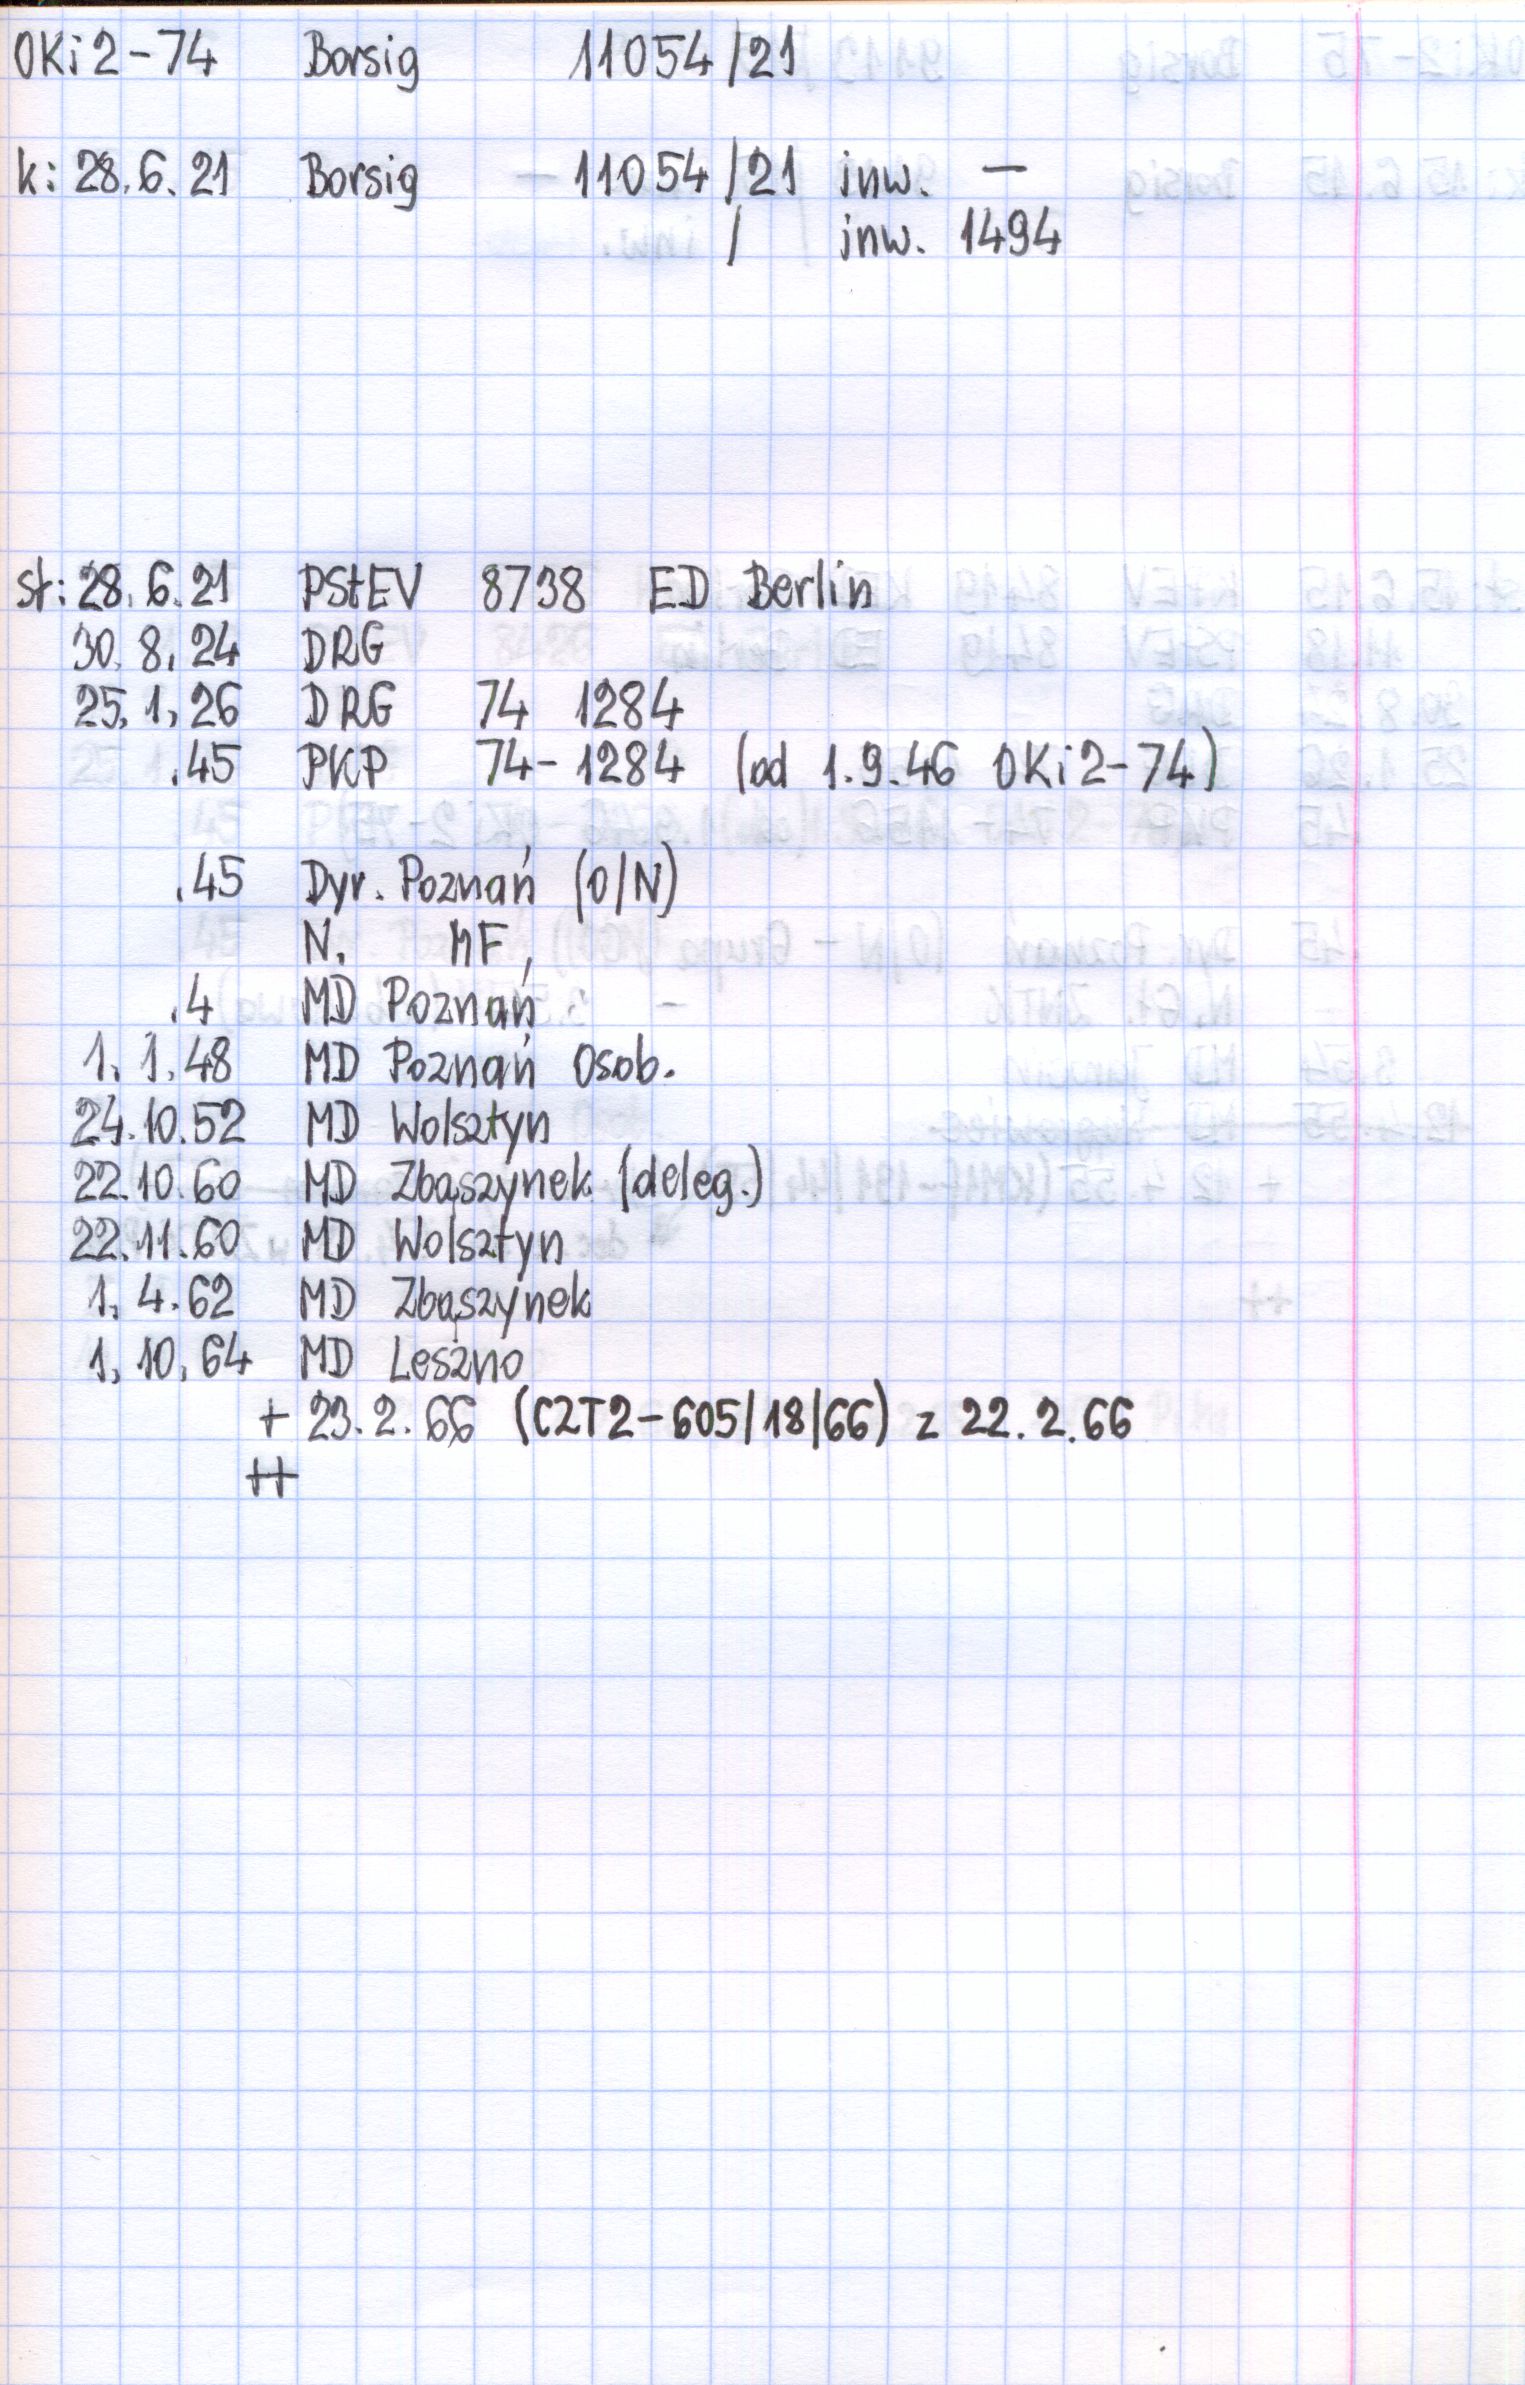 OKi2-74 Borsig 11054/21
k: 28.6.21 Borsig - 11054/21 inw. -
/ inw. 1494
st: 28.6.21 PStEV 8738 ED Berlin
30.8.24 DRG
25.1.26 DRG 74 1284
.45 PKP 74-1284 (od 1.9.46 OKi2-74)
.45 Dyr. Poznań (O/N)
N. MF,
.4 MD Poznań
1.1.48 MD Poznań Osob.
24.10.52 MD Wolsztyn
22.10.60 MD Zbąszynek (deleg.)
22.11.60 MD Wolsztyn
1.4.62 MD Zbąszynek
1.10.64 MD Leszno
+ 23.2.66 (CZT2-605/18/66) z 22.2.66
++